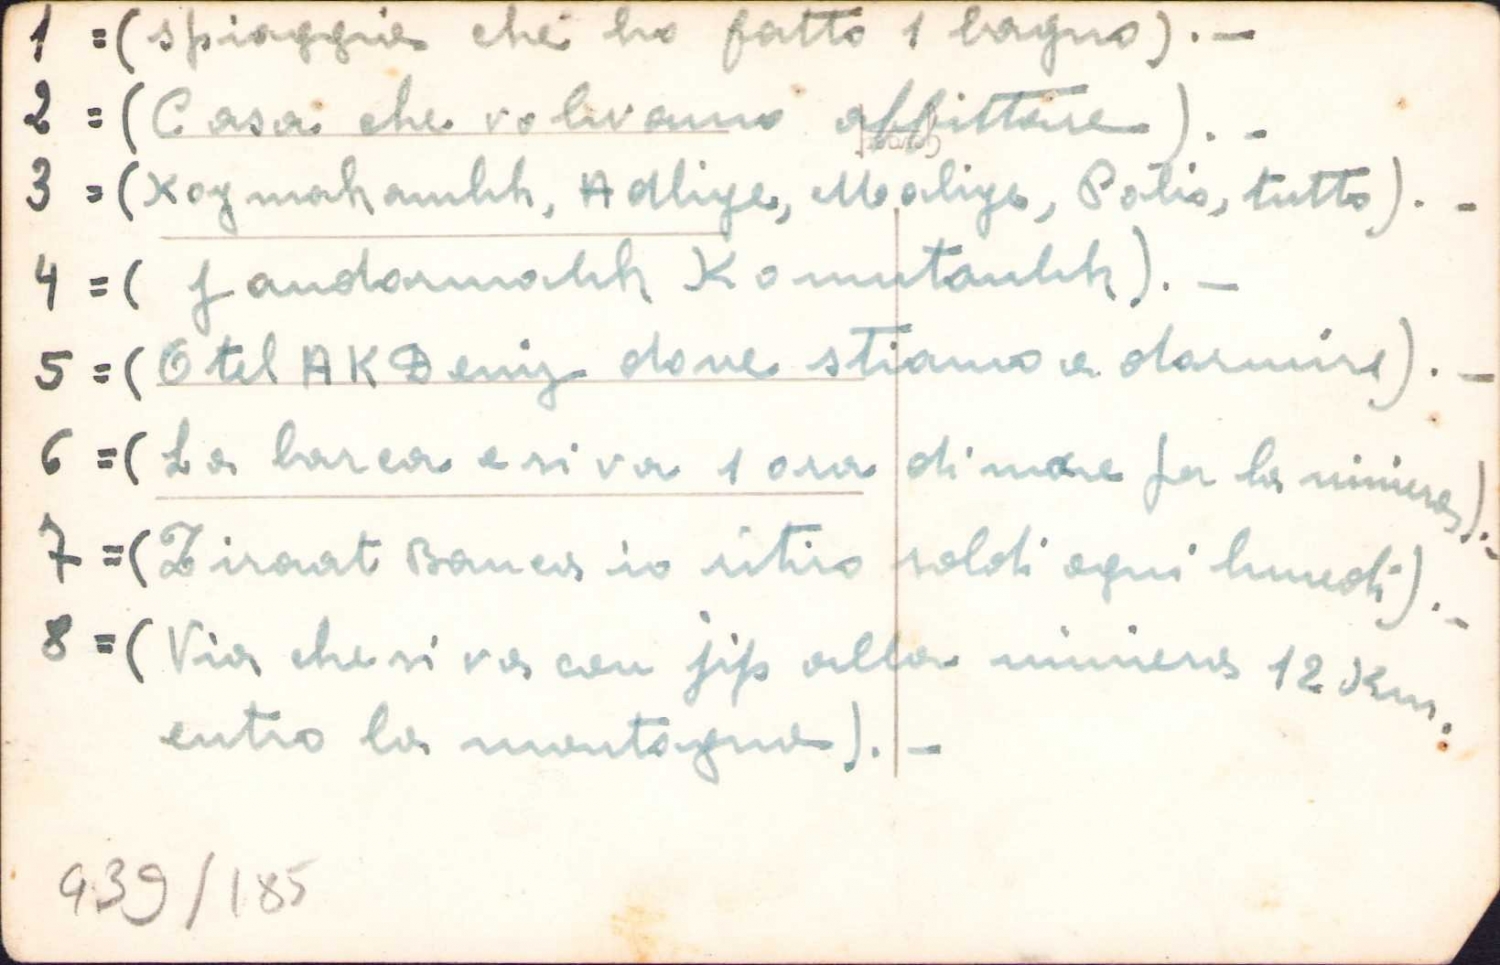 1 =(spiaggia che ho fatto 1 bagno). -
2 =(Casa che volevamo affittare). -
3 =(Kaymakamlık, Adliye, Maliye, Polis, tutto). -
4 =( Jandarmalık Komutanlık). -
5 =(Otel AKDeniz dove stiamo a dormire). -
6 =(La barca e si va 1 ora di mare per la miniera). -
7 =(Ziraat Banca io ritiro soldi ogni lunedì). -
8 =(Via che si va con jip alla miniera 12 Km.
entro la montagna). -
939/185